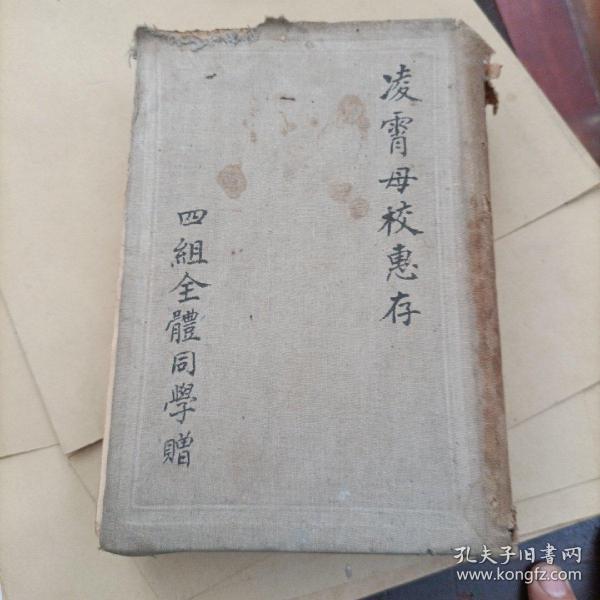 凌霄母校惠存
四組全體同學贈
孔夫子旧书网
www.kongfz.com